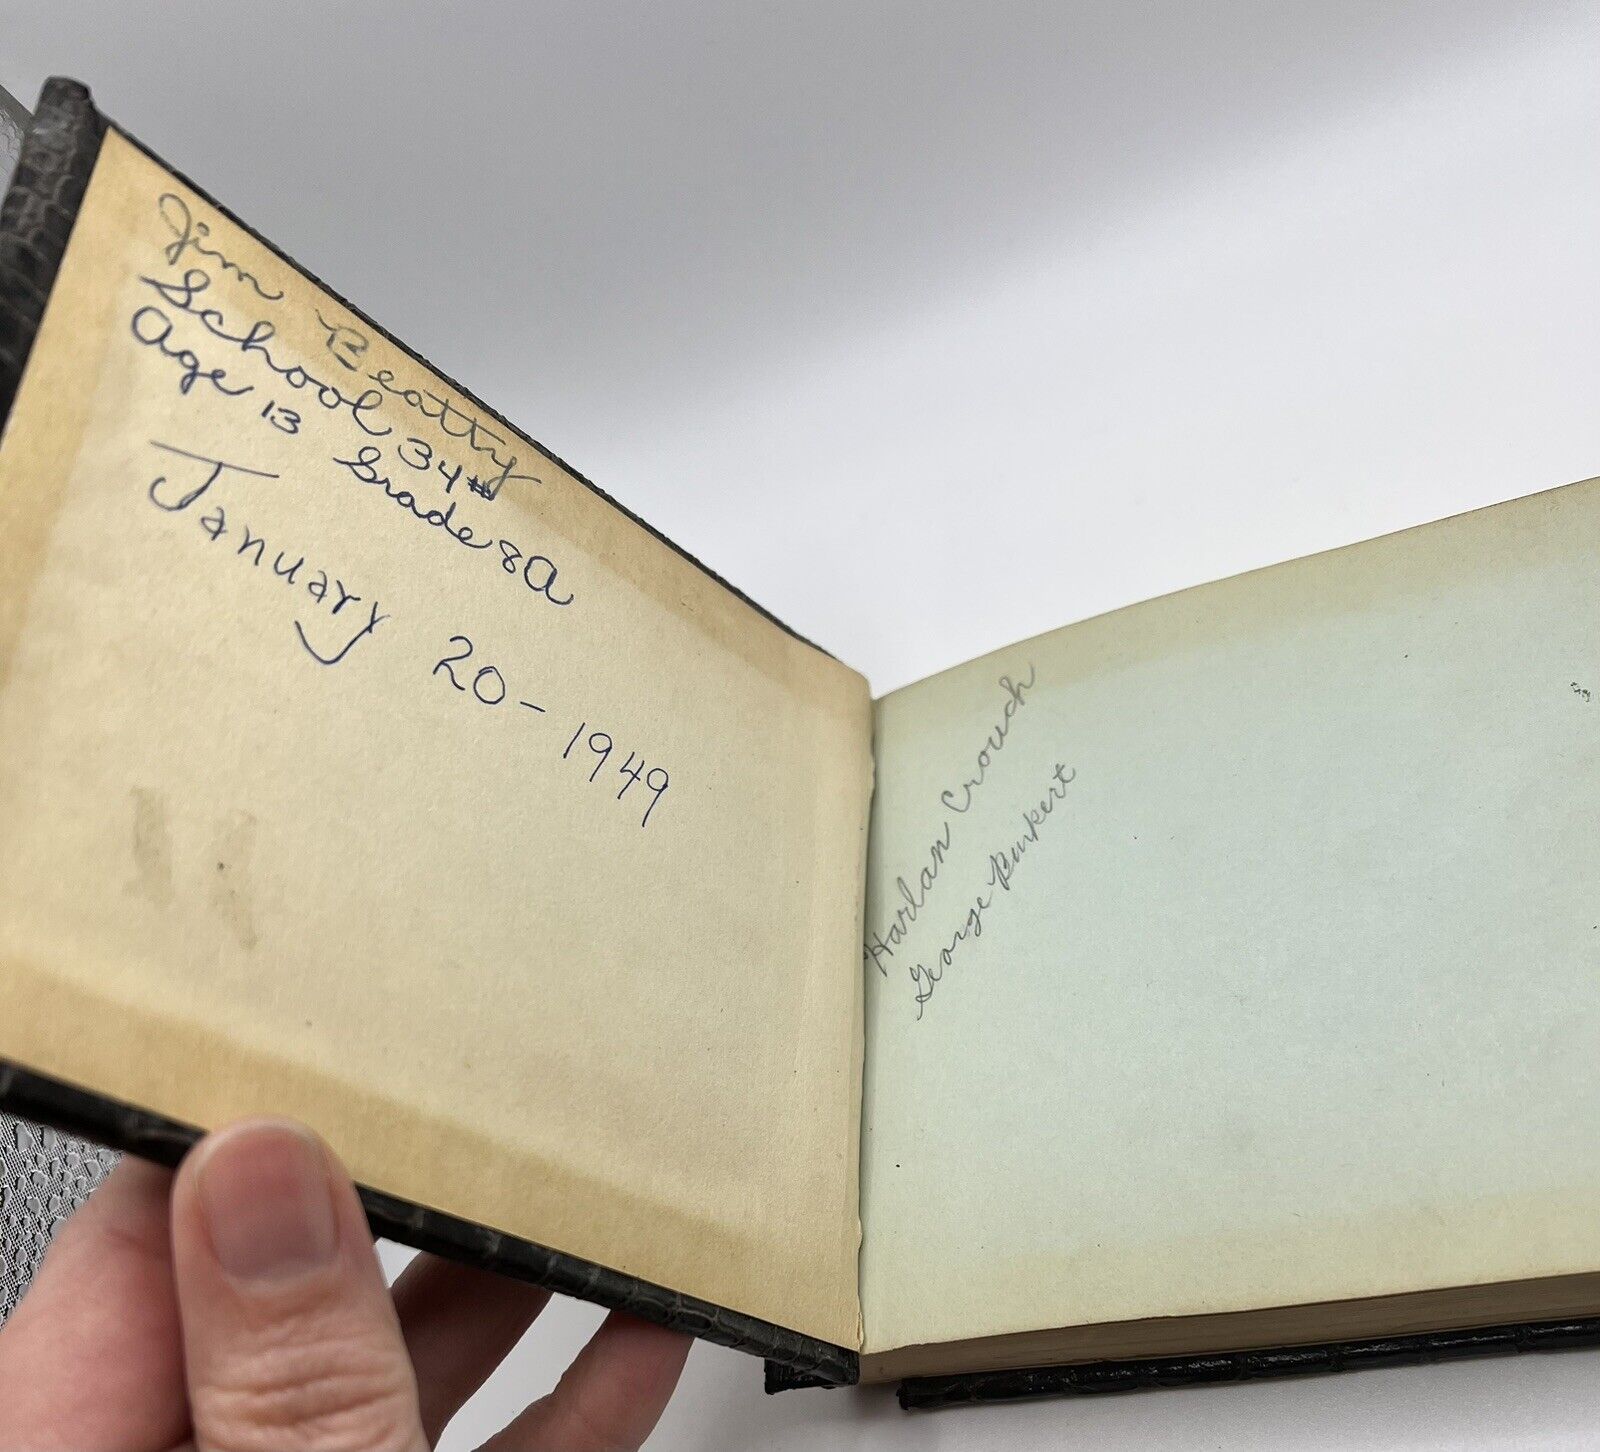 Jim Beatty
School 34#
Age 13 Grade 8A
January 20-1949
Harlan Crouch
George Burkert